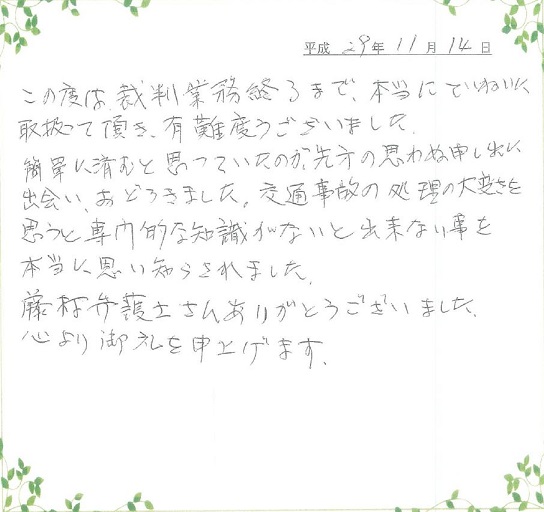 平成 29年 11月 14日
この度は、裁判業務終るまで、本当にていねいに
取扱って頂き、有難度うございました。
簡単に済むと思っていたのが、先方の思わぬ申し出に
出会い、おどろきました。交通事故の処理の大変さを
思うと専門的な知識がないと出来ない事を
本当に思い知らされました。
藤村弁護士さんありがとうございました。
心より御礼を申上げます。